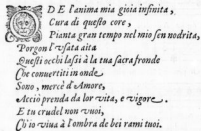 DE l'anima mia gioia infinita,
Cura di questo core,
Pianta gran tempo nel mio sen nodrita,
Porgon l'vsata aita
Questi occhi lassi à la tua sacra fronde
Che conuertiti in onde
Sono, mercè d'Amore,
Acciò prenda da lor vita, e vigore.
E tu crudel non vuoi,
Ch'io viua à l'ombra de bei rami tuoi.